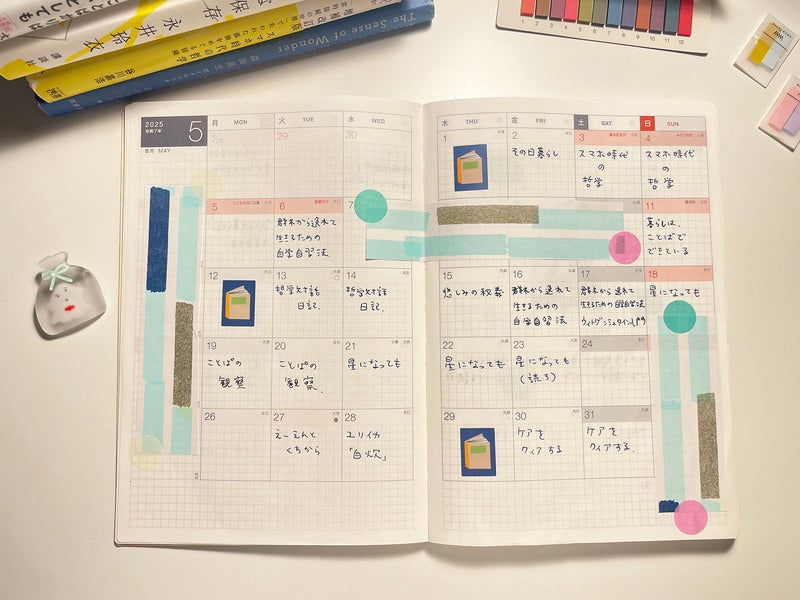 永井玲衣
講談社
スマホ時代の哲学
谷川嘉浩
The Sense of Wonder
森田真生
2025
令和7年
5
皐月 MAY
月 MON
火 TUE
水 WED
木 THU
金 FRI
土 SAT
日 SUN
29
30
1
2
その日暮らし
3
スマホ時代
の
哲学
4
スマホ時代
の
哲学
5
6
群れから逸れて
生きるための
自学自習法.
7
11
暮らしは、
ことばで
できている
12
13
哲学対話
日記.
14
哲学対話
日記.
15
悲しみの秘義
16
群れから逸れて
生きるための
自学自習法
17
群れから逸れて
生きるための自学自習法
ウィトゲンシュタイン入門
18
星になっても
19
ことばの
観察
20
ことばの
観察.
21
星になっても
22
星になっても
23
星になっても
(読了)
24
26
27
えーえんと
くちから
28
ユリイカ
「自炊」
29
30
ケアを
クィアする
31
ケアを
クィアする.
1 2 3 4 5 6 7 8 9 10 11 12